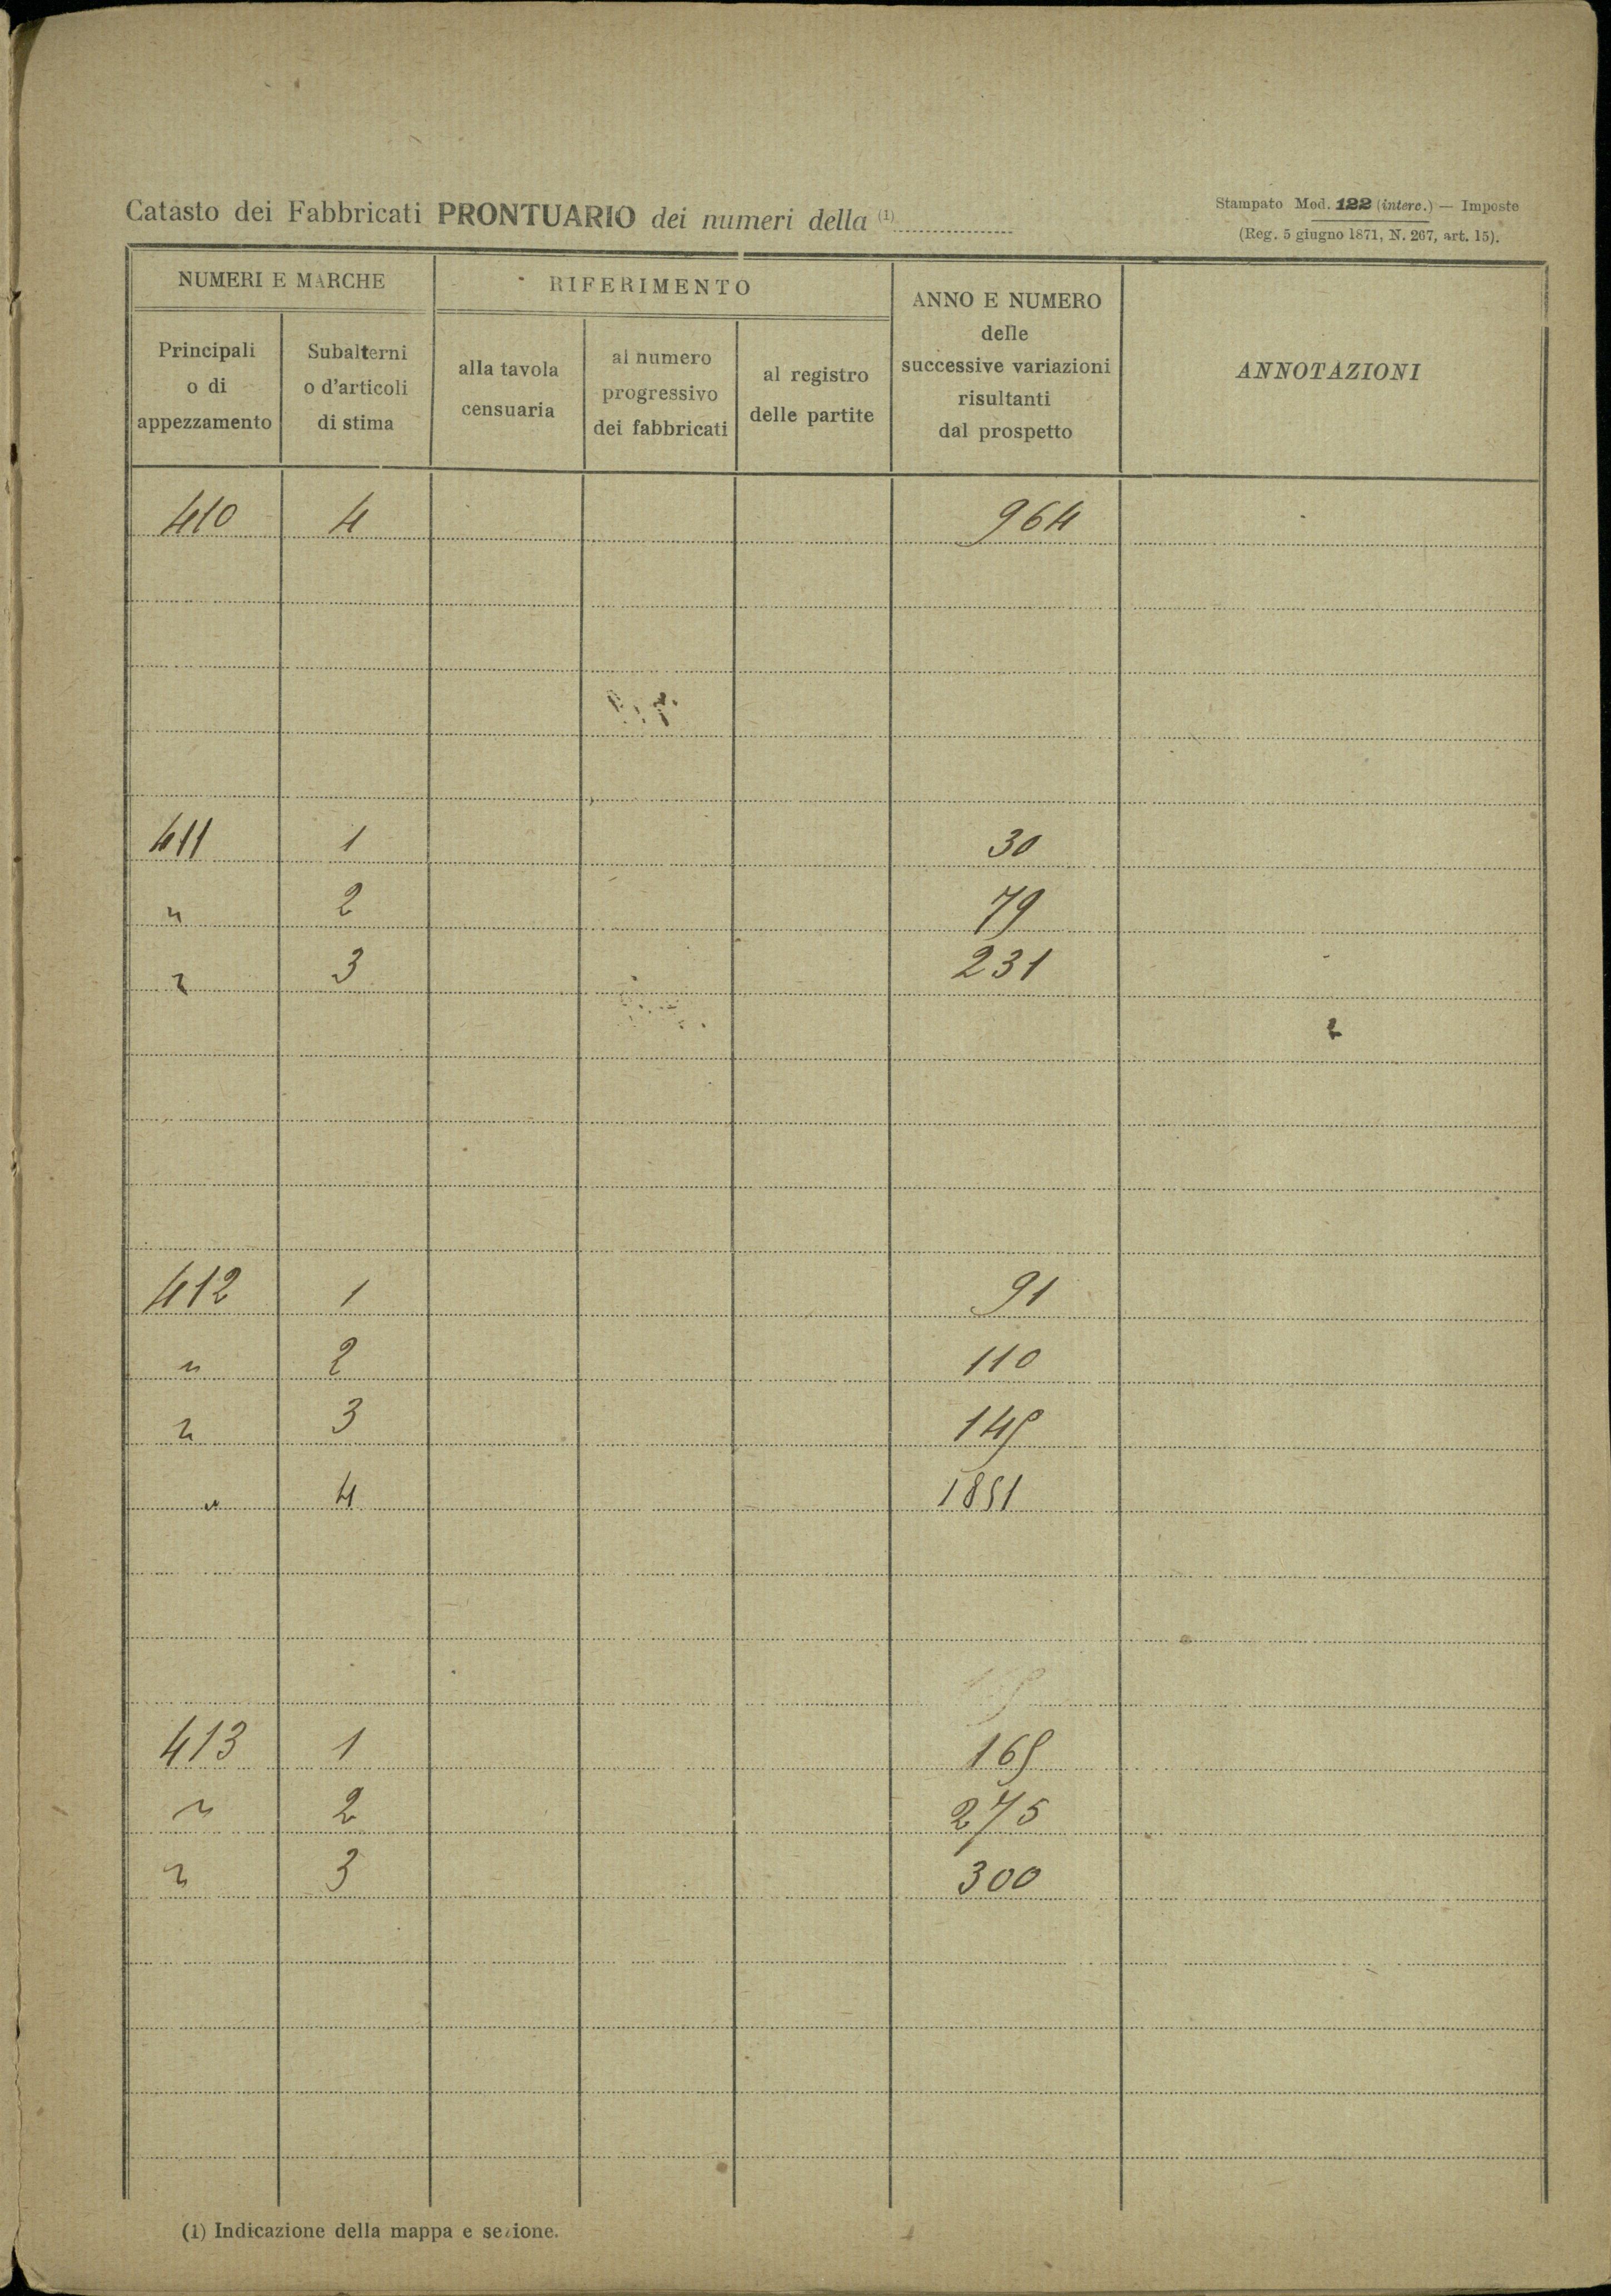 Catasto dei Fabbricati PRONTUARIO dei numeri della (1)
Stampato Mod. 122 (interc.) — Imposte
(Reg. 5 giugno 1871, N. 267, art. 15).
NUMERI E MARCHE
RIFERIMENTO
ANNO E NUMERO
delle
successive variazioni
risultanti
dal prospetto
ANNOTAZIONI
Principali
o di
appezzamento
Subalterni
o d'articoli
di stima
alla tavola
censuaria
al numero
progressivo
dei fabbricati
al registro
delle partite
410 4 964
411 1 30
" 2 79
" 3 231
412 1 91
" 2 110
" 3 145
" 4 1851
413 1 165
" 2 275
" 3 300
(1) Indicazione della mappa e sezione.